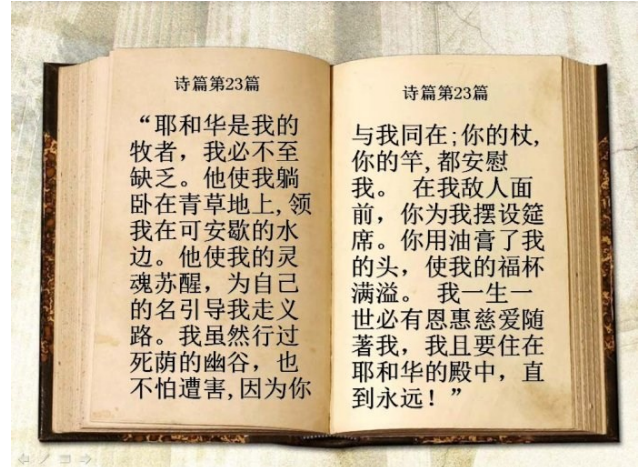 诗篇第23篇
“耶和华是我的
牧者，我必不至
缺乏。他使我躺
卧在青草地上,领
我在可安歇的水
边。他使我的灵
魂苏醒，为自己
的名引导我走义
路。我虽然行过
死荫的幽谷，也
不怕遭害,因为你
诗篇第23篇
与我同在;你的杖,
你的竿,都安慰
我。 在我敌人面
前，你为我摆设筵
席。你用油膏了我
的头，使我的福杯
满溢。 我一生一
世必有恩惠慈爱随
著我，我且要住在
耶和华的殿中，直
到永远！”